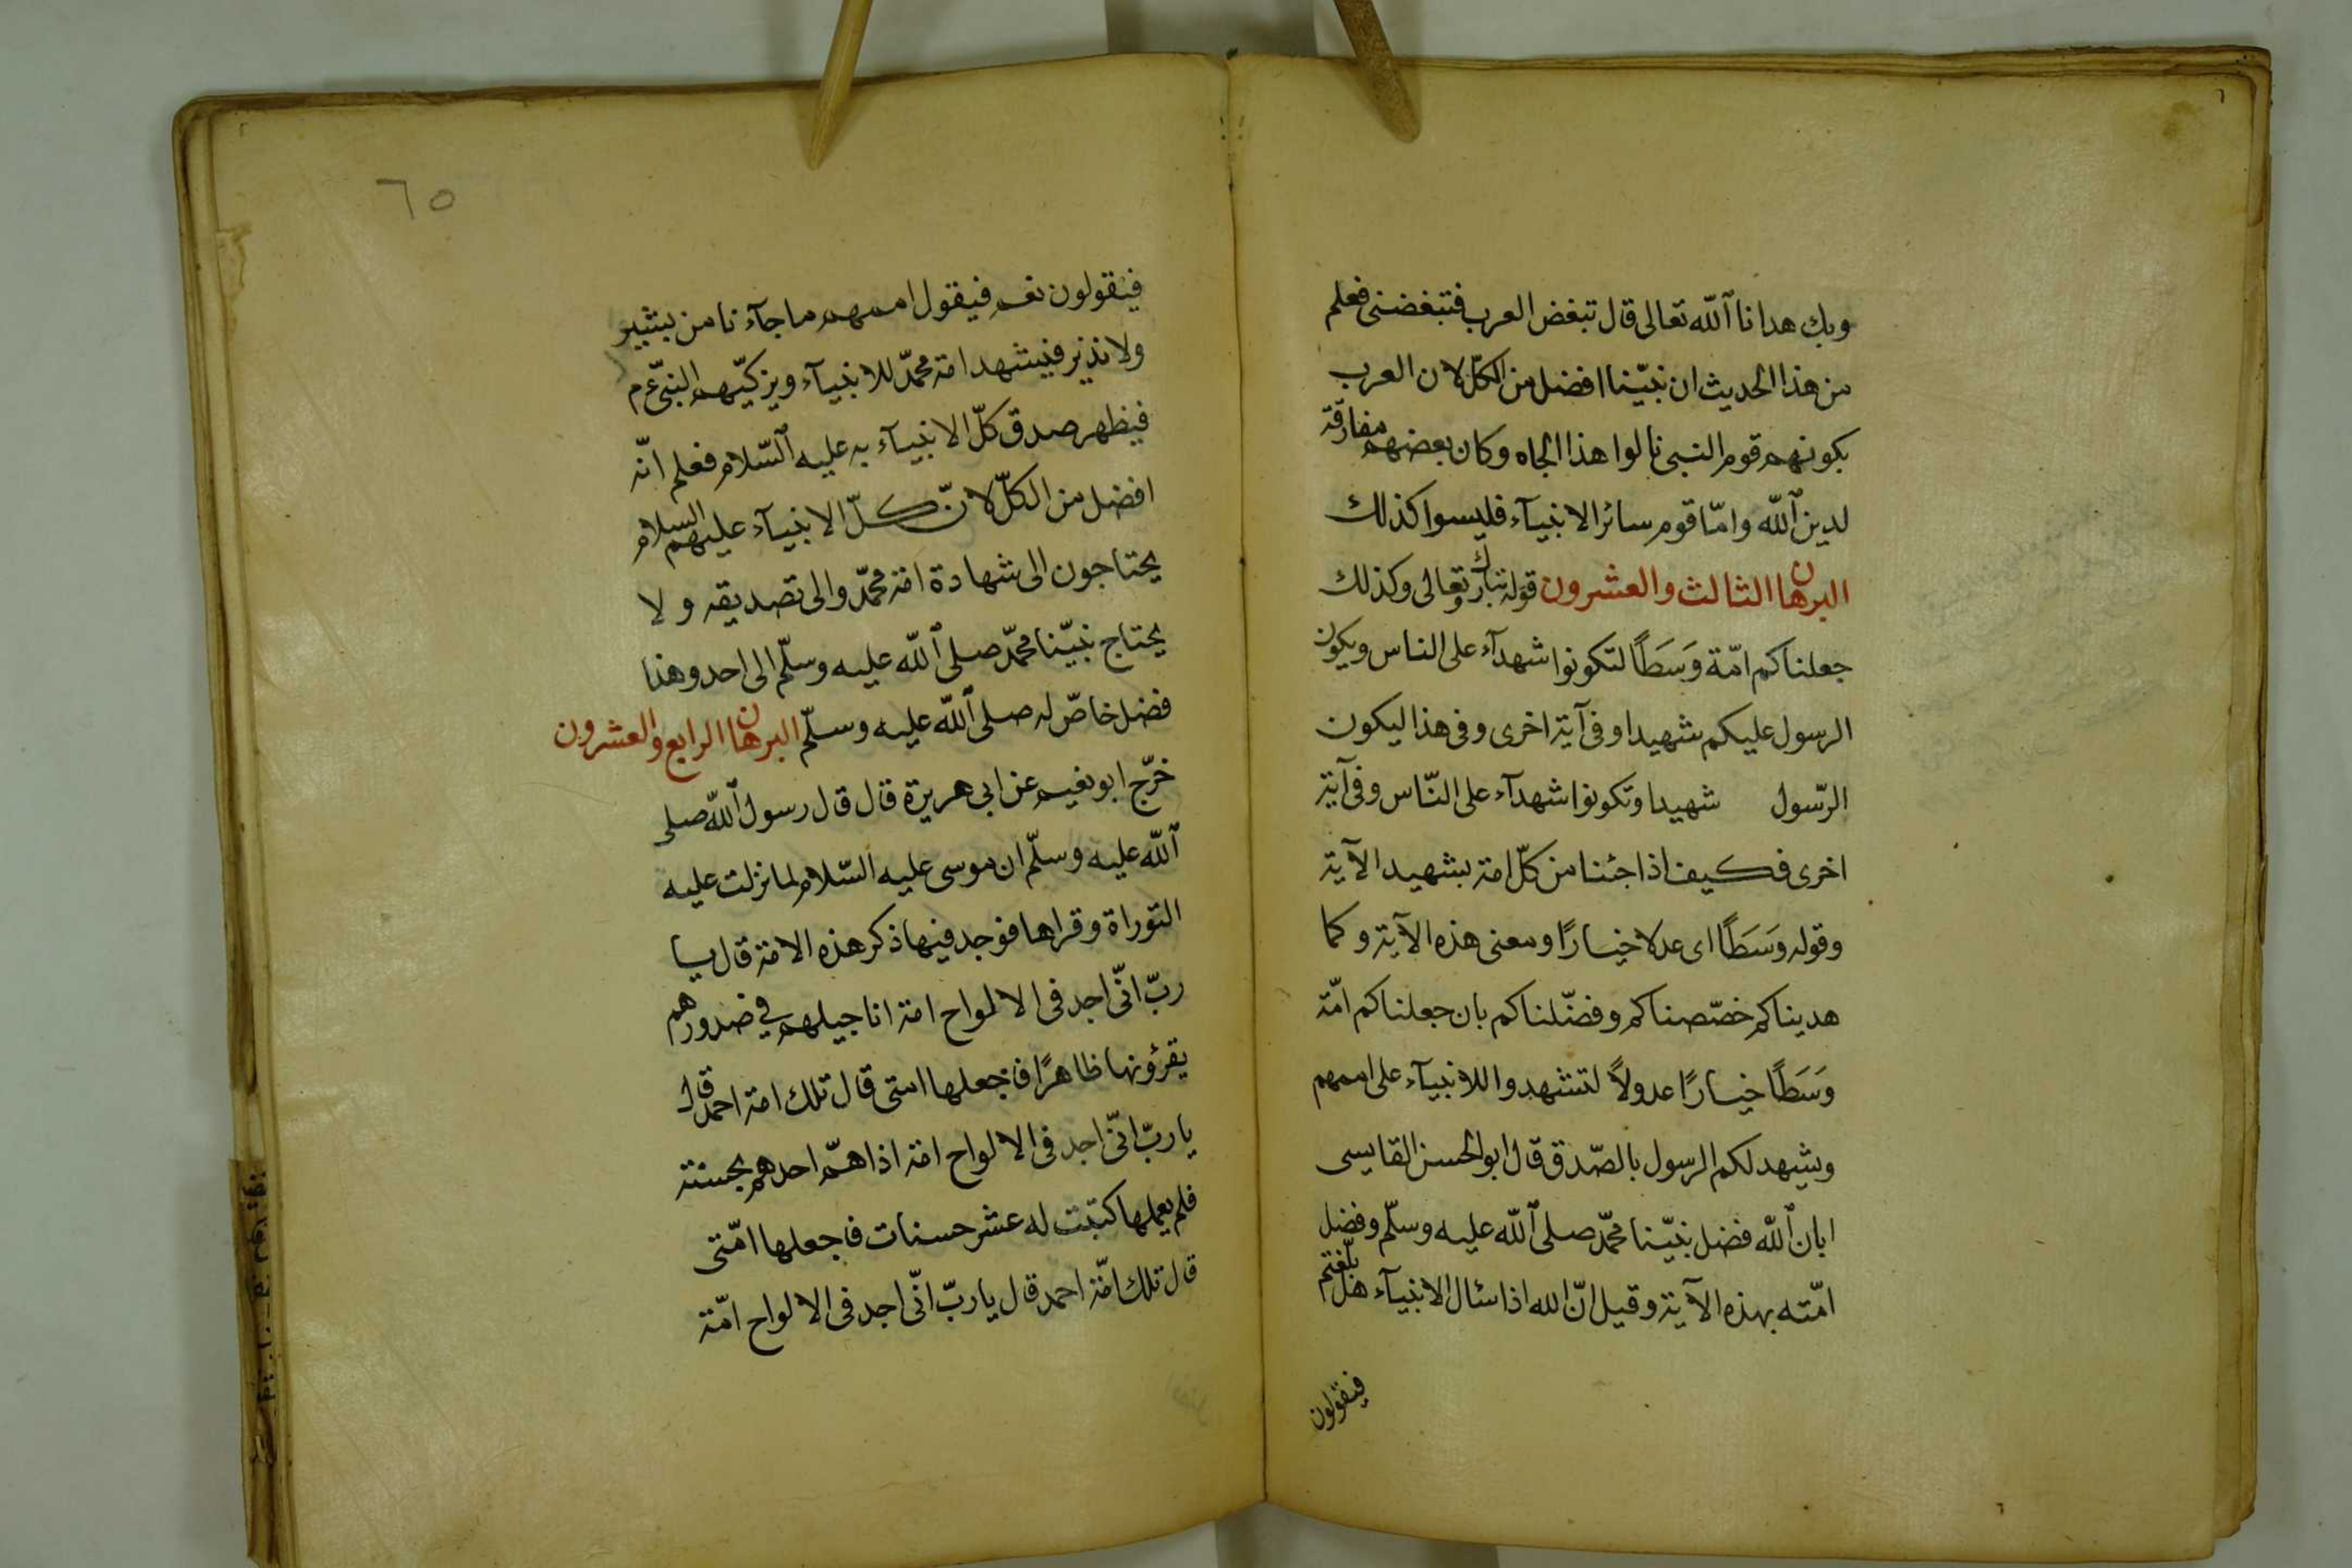 وبك هدانا الله تعالى قال تبغض العرب فتبغضنى فعلم
من هذا الحديث ان نبيّنا افضل من الكلّ لان العرب
بكونهم قوم النبى نالوا هذا الجاه وكان بعضهم مفارقة
لدين الله وامّا قوم سائر الانبيآء فليسوا كذلك
البرهان الثالث والعشرون قوله تبارك وتعالى وكذلك
جعلناكم امّة وَسَطًا لتكونوا شهدآء على الناس ويكون
الرسول عليكم شهيدا وفى آية اخرى وفى هذا ليكون
الرّسول شهيدا وتكونوا شهدآء على النّاس وفى آية
اخرى فكيف اذا جئنا من كلّ امة بشهيد الآية
وقوله وَسَطًا اى عدلا خيارًا ومعنى هذه الآية وكما
هديناكم خصّصناكم وفضّلناكم بان جعلناكم امّة
وَسَطًا خيارًا عدولاً لتشهدوا للانبيآء على اممهم
ويشهد لكم الرسول بالصّدق قال ابو الحسن القابسى
ابان الله فضل نبيّنا محمّد صلى الله عليه وسلّم وفضل
امّته بهذه الآية وقيل انّ الله اذا سئال الانبيآء هل بلّغتم
فيقولون
٦٥
فيقولون نعم فيقول اممهم ما جآءنا من بشير
ولا نذير فيشهد امة محمّد للانبيآء ويزكيّهم النبىّ ع م
فيظهر صدق كلّ الانبيآء به عليه السّلام فعلم انّه
افضل من الكلّ لانّ كلّ الانبيآء عليهم السلام
يحتاجون الى شهادة امة محمّد والى تصديقه ولا
يحتاج نبيّنا محمّد صلى الله عليه وسلّم الى احد وهذا
فضل خاصّ له صلى الله عليه وسلّم البرهان الرابع والعشرون
خرّج ابو نعيم عن ابى هريرة قال قال رسول الله صلى
الله عليه وسلّم ان موسى عليه السّلام لما نزلت عليه
التوراة وقراها فوجد فيها ذكر هذه الامة قال يا
ربّ انّى اجد فى الالواح امة اناجيلهم في صدورهم
يقرؤنها ظاهرًا فاجعلها امتى قال تلك امة احمد قال
يا ربّ انّى اجد فى الالواح امة اذا همّ احدهم بحسنة
فلم يعملها كتبت له عشر حسنات فاجعلها امّتى
قال تلك امّة احمد قال يا ربّ انّى اجد فى الالواح امّة